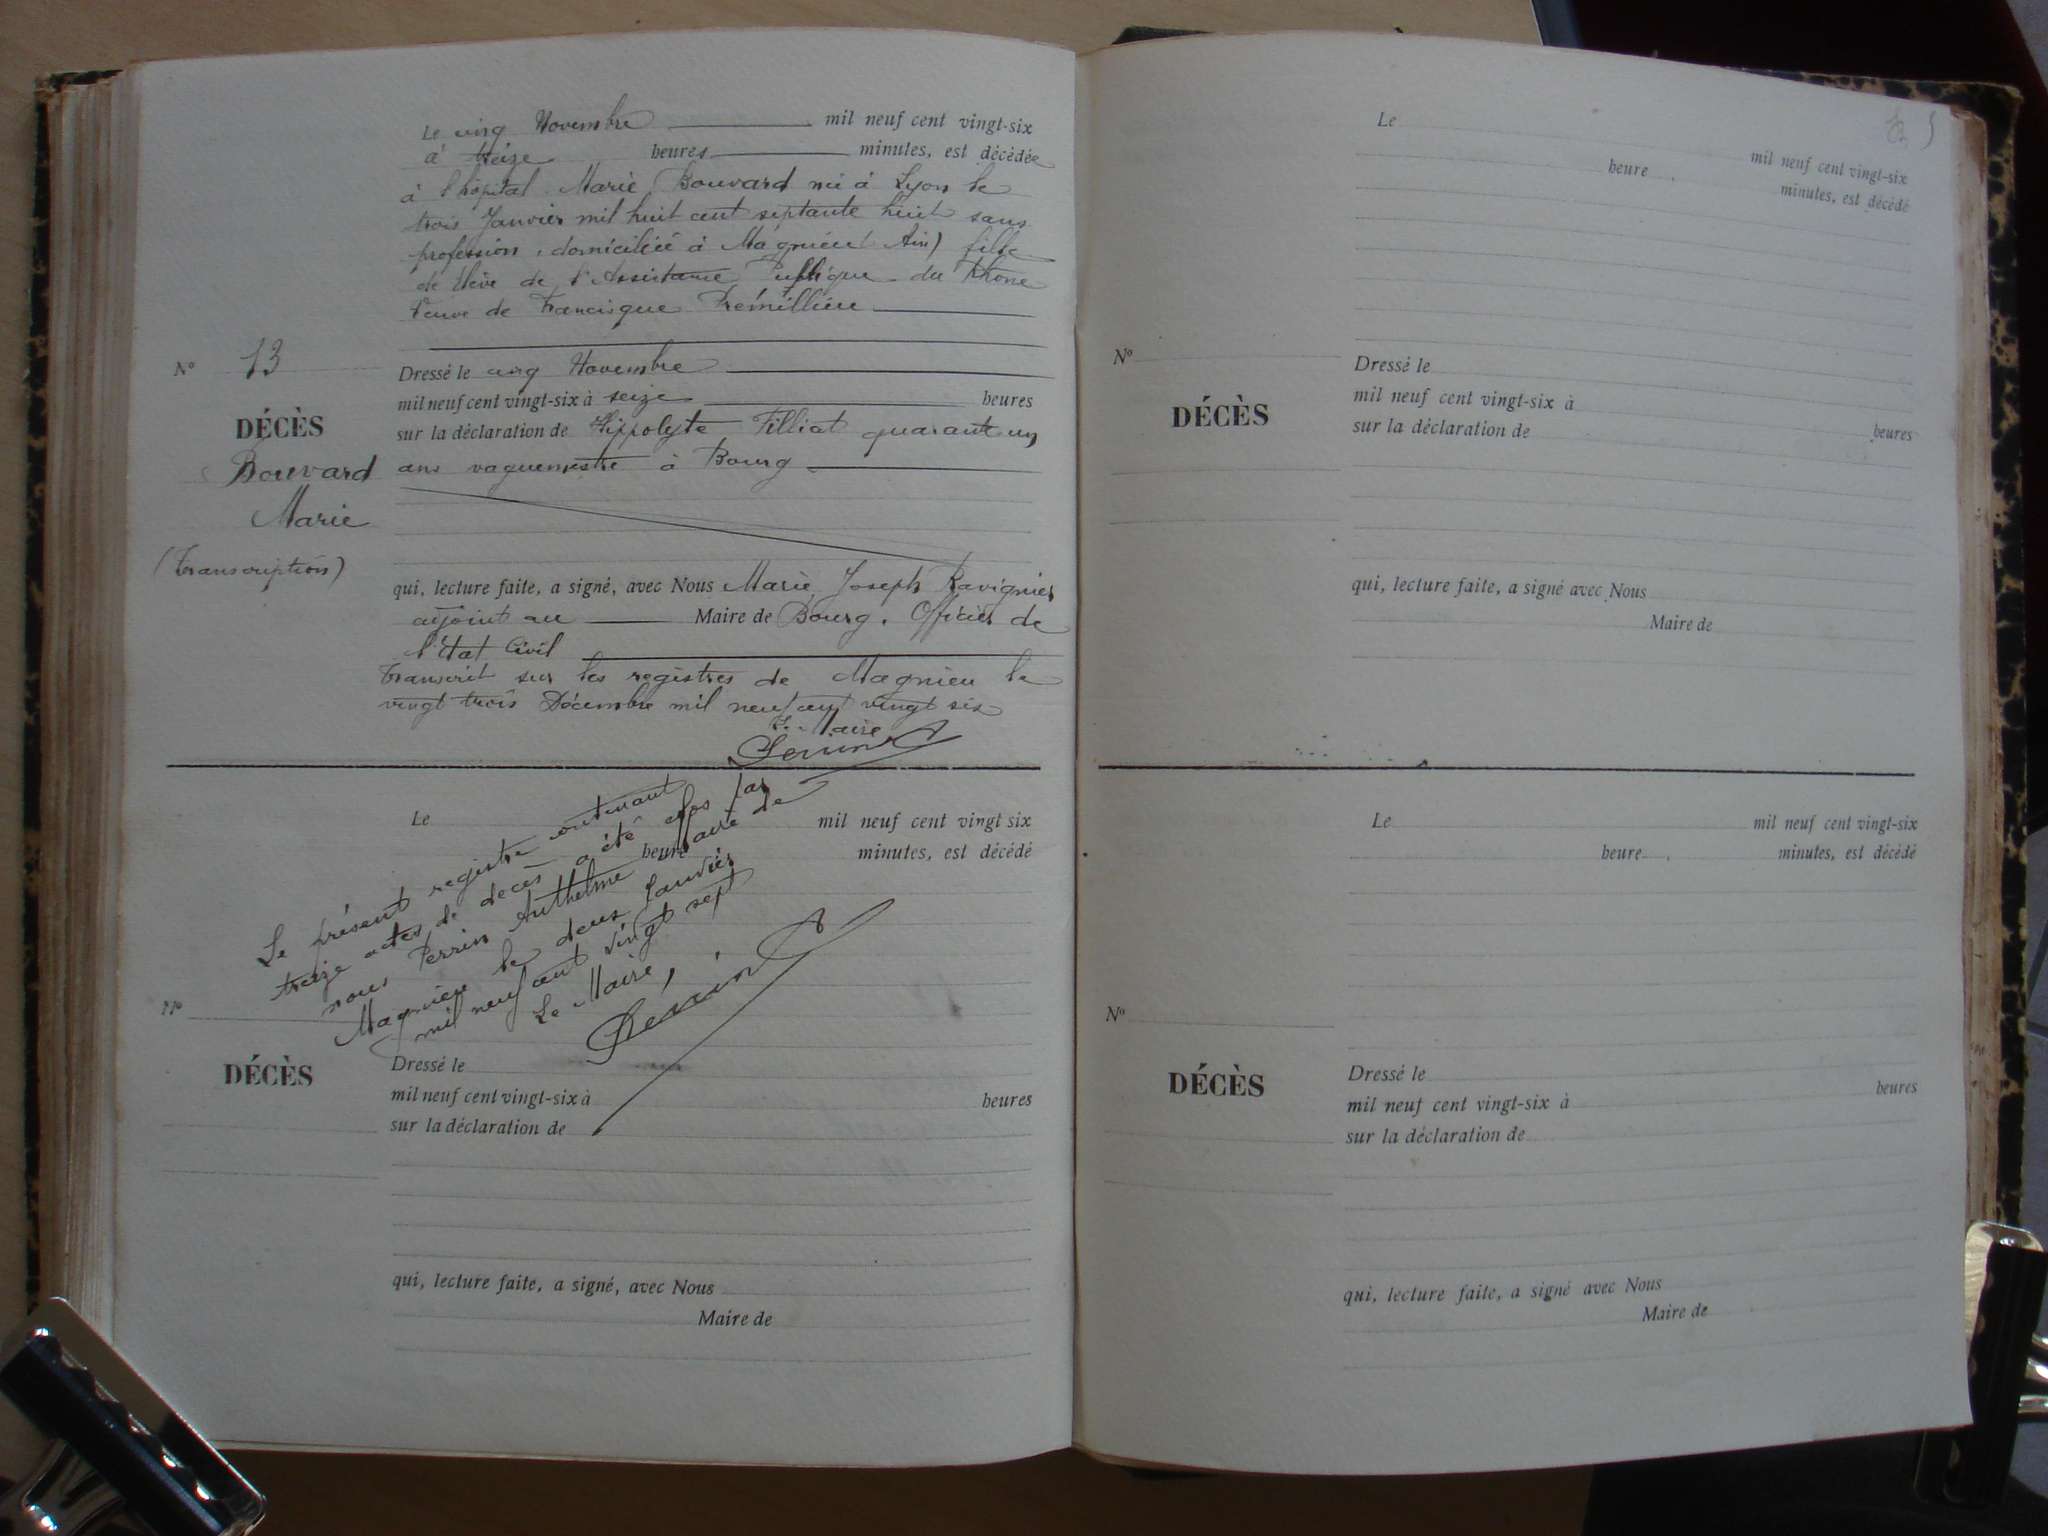 Le cinq Novembre mil neuf cent vingt-six
à treize heures minutes, est décédée
à l'hôpital Marie Bouvard né à Lyon le
trois Janvier mil huit cent septante huit sans
profession, domiciliée à Magnieu (Ain) fille
de élève de l'Assistance Publique du Rhône
Veuve de Francisque Prémillieu
N° 13
DÉCÈS
Bouvard
Marie
(Transcription)
Dressé le cinq Novembre
mil neuf cent vingt-six à seize heures
sur la déclaration de Hippolyte Filliat quarante un
ans vaguemestre à Bourg
qui, lecture faite, a signé, avec Nous Marie Joseph Ravignier
adjoint au Maire de Bourg. Officier de
l'Etat Civil
Transcrit sur les registres de Magnieu le
vingt trois Décembre mil neuf cent vingt six
Le Maire
Perrin
Le mil neuf cent vingt six
heure minutes, est décédé
Le présent registre contenant
treize actes de decès a été clos par
nous Perrin Anthelme Maire de
Magnieu le deux Janvier
mil neuf cent vingt sept
Le Maire,
Perrin
N°
DÉCÈS
Dressé le
mil neuf cent vingt-six à heures
sur la déclaration de
qui, lecture faite, a signé, avec Nous
Maire de
Le mil neuf cent vingt-six
heure minutes, est décédé
N°
DÉCÈS
Dressé le
mil neuf cent vingt-six à heures
sur la déclaration de
qui, lecture faite, a signé avec Nous
Maire de
Le mil neuf cent vingt-six
heure minutes, est décédé
N°
DÉCÈS
Dressé le
mil neuf cent vingt-six à heures
sur la déclaration de
qui, lecture faite, a signé avec Nous
Maire de